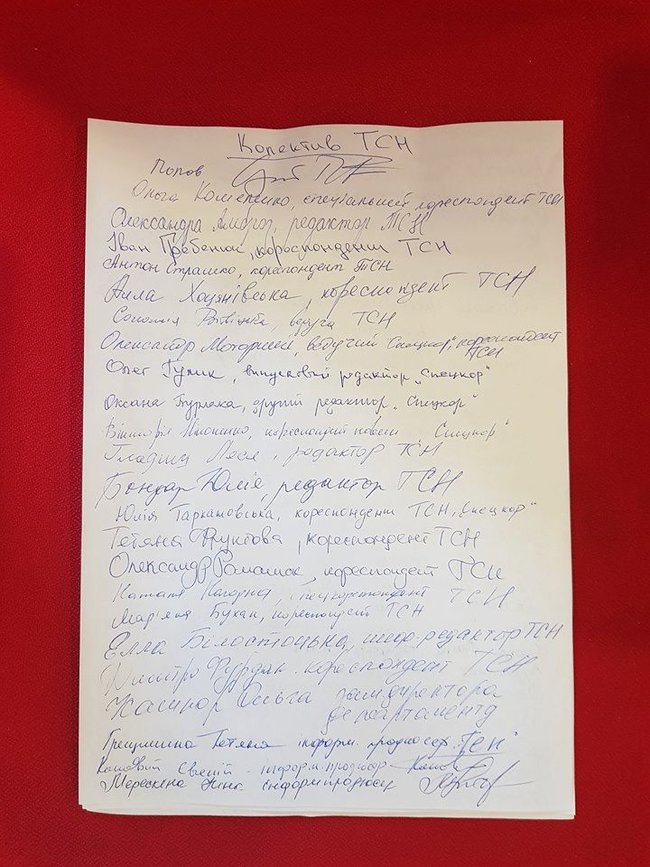 Колектив ТСН
Попов
Ольга Кошеленко, спеціальний кореспондент ТСН
Олександра, редактор ТСН
Іван Гребенюк, кореспондент ТСН
Антон Страшко, кореспондент ТСН
Алла Хоцянівська, кореспондент ТСН
Соломія Вітвіцька, ведуча ТСН
Олександр Моторний, ведучий "Спецкор", кореспондент
ТСН
Олег Гулик, випусковий редактор "Спецкор"
Оксана Бурлака, другий редактор "Спецкор"
Вікторія, кореспондент "Спецкор"
Гладиш Леся, редактор
Бондар Юлія, редактор ТСН
Юлія Таркановська, кореспондент ТСН, "Спецкор"
Тетяна Фруктова, кореспондент ТСН
Олександр Романюк, кореспондент ТСН
Наталя Нагорна, спецкореспондент ТСН
Мар'яна Бухан, кореспондент ТСН
Елла Білостоцька, шеф-редактор ТСН
Дмитро Фурдак кореспондент ТСН
Кашпор Ольга замдиректора
департаменту
Грещишина Тетяна інформ. продюсер "ТСН"
Євгеній - інформ. продюсер
Мерескена Ніна інформпродюсер